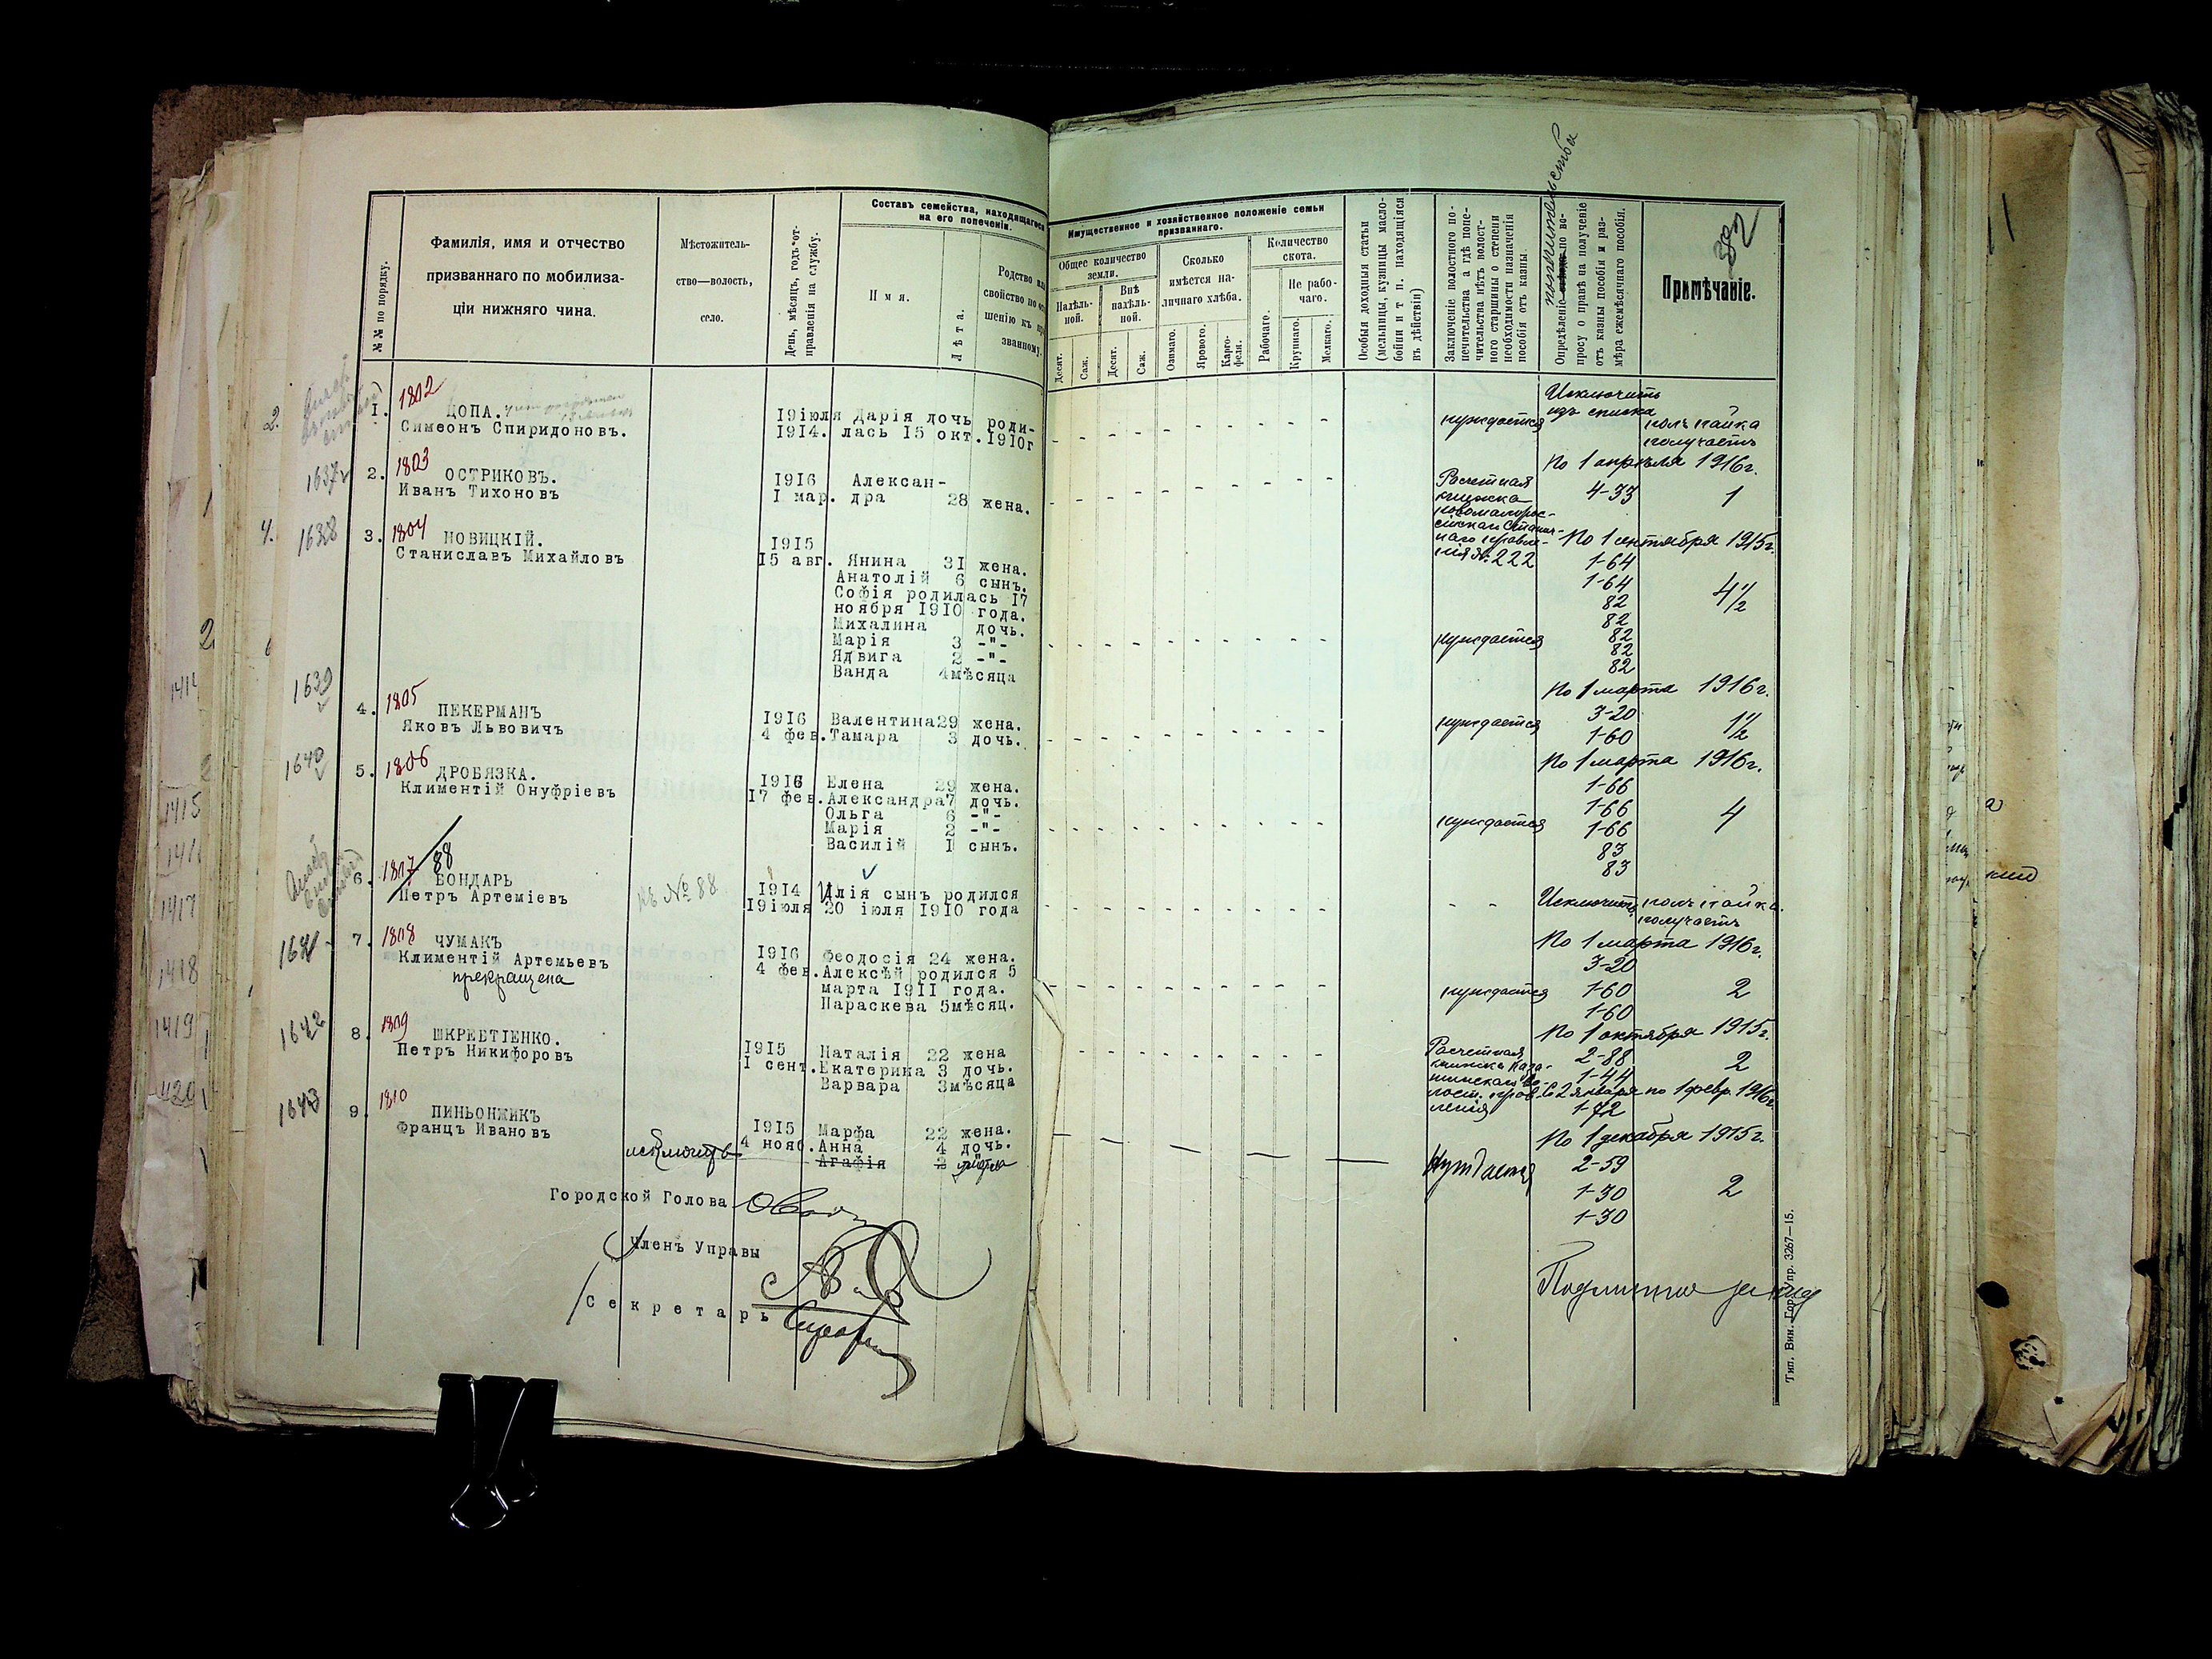 №№ по порядку.
Фамилія, имя и отчество
призваннаго по мобилиза-
ціи нижняго чина.
Мѣстожитель-
ство—волость,
село.
День, мѣсяцъ, годъ от-
правленія на службу.
Составъ семейства, находящагося
на его попеченіи.
Имя.
Лѣта.
Родство или
свойство по от
шенію къ при
званному.
Имущественное и хозяйственное положеніе семьи
призваннаго.
Общее количество
земли.
Надѣль-
ной.
Внѣ
надѣль-
ной.
Десят.
Саж.
Десят.
Саж.
Сколько
имѣется на-
личнаго хлѣба.
Озимаго.
Ярового.
Карто-
феля.
Количество
скота.
Рабочаго.
Не рабо-
чаго.
Крупнаго.
Мелкаго.
Особыя доходныя статьи
(мельницы, кузницы масло-
бойни и т п. находящіяся
въ дѣйствіи)
Заключеніе волостного по-
печительства а гдѣ попе-
чительства нѣтъ волост-
ного старшины о степени
необходимости назначенія
пособія отъ казны.
попечительства
Опредѣленіе по во-
просу о правѣ на полученіе
отъ казны пособія и раз-
мѣра ежемѣсячнаго пособія.
Примѣчаніе.
2.
1802
1. ЦОПА.
Симеонъ Спиридоновъ.
19 іюля Дарія дочь роди-
1914. лась 15 окт. 1910г
нуждается
Исключить
изъ списка
полъ пайка
получаетъ
1637
1803
2. ОСТРИКОВЪ.
Иванъ Тихоновъ
1916 Алексан-
1 мар. дра 28 жена.
Расчетная
книжка
новомалорос-
сійскаго Станич-
наго правле-
нія № 222
По 1 апрѣля 1916г.
4-33 1
4.
1638
1804
3. НОВИЦКІЙ.
Станиславъ Михайловъ
1915
15 авг. Янина 31 жена.
Анатолій 6 сынъ.
Софія родилась 17
ноября 1910 года.
Михалина дочь.
Марія 3 -"-
Ядвига 2 -"-
Ванда 4 мѣсяца
нуждается
По 1 сентября 1915г.
1-64
1-64
82
82
82
82
82
4½
1639
1805
4. ПЕКЕРМАНЪ
Яковъ Львовичъ
1916 Валентина 29 жена.
4 фев. Тамара 3 дочь.
нуждается
По 1 марта 1916г.
3-20
1-60
1½
1640
1806
5. ДРОБЯЗКА.
Климентій Онуфріевъ
1916 Елена 29 жена.
17 фев. Александра 7 дочь.
Ольга 6 -"-
Марія 2 -"-
Василій 1 сынъ.
нуждается
По 1 марта 1916г.
1-66
1-66
1-66
83
83
4
1807 88
6. БОНДАРЬ
Петръ Артеміевъ
къ № 88
1914 Илія сынъ родился
19 іюля 20 іюля 1910 года
Исключить полъ пайка
получаетъ
1641
1808
7. ЧУМАКЪ
Климентій Артемьевъ
прекращена
1916 Феодосія 24 жена.
4 фев. Алексѣй родился 5
марта 1911 года.
Параскева 5 мѣсяц.
нуждается
По 1 марта 1916г.
3-20
1-60
1-60
2
1642
1809
8. ШКРЕБТІЕНКО.
Петръ Никифоровъ
1915 Наталія 22 жена
1 сент. Екатерина 3 дочь.
Варвара 3 мѣсяца
Расчетная
книжка
По 1 октября 1915г.
2-88
1-44
2
2 января по 1 февр. 1916г
1-72
1643
1810
9. ПИНЬОНЖИКЪ
Францъ Ивановъ
исключить
1915 Марфа 22 жена.
4 нояб. Анна 4 дочь.
Агафія 2
Нуждается
По 1 декабря 1915г.
2-59
1-30
1-30
2
Городской Голова
Членъ Управы
Секретарь
Тип. Вин. Гор. Упр. 3267—15.
1415
1417
1418
1419